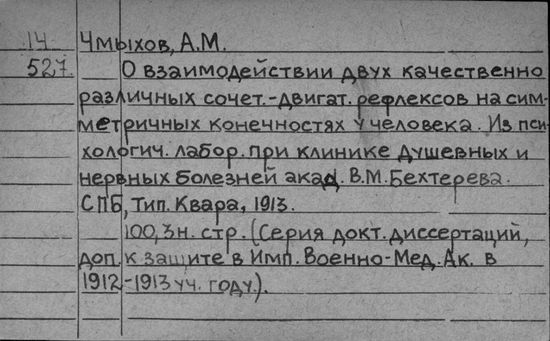 14 Чмыхов, А.М.
527 О взаимодействии двух качественно
различных сочет.-двигат. рефлексов на сим-
метричных конечностях у человека. Из пси-
хологич. лабор. при клинике душевных и
нервных болезней акад. В.М. Бехтерева.
СПБ, Тип. Квара, 1913.
100, 3 н. стр. (Серия докт. диссертаций,
доп. к защите в Имп. Военно-Мед. Ак. в
1912-1913 уч. году.).